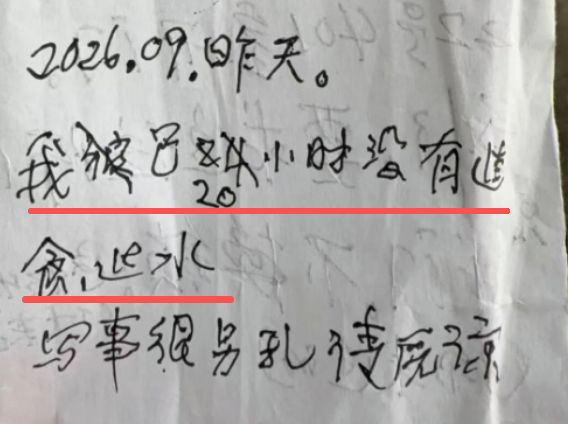 2026.09.昨天。
我已20小时没有进
食.进水
写事很另乱 请原谅